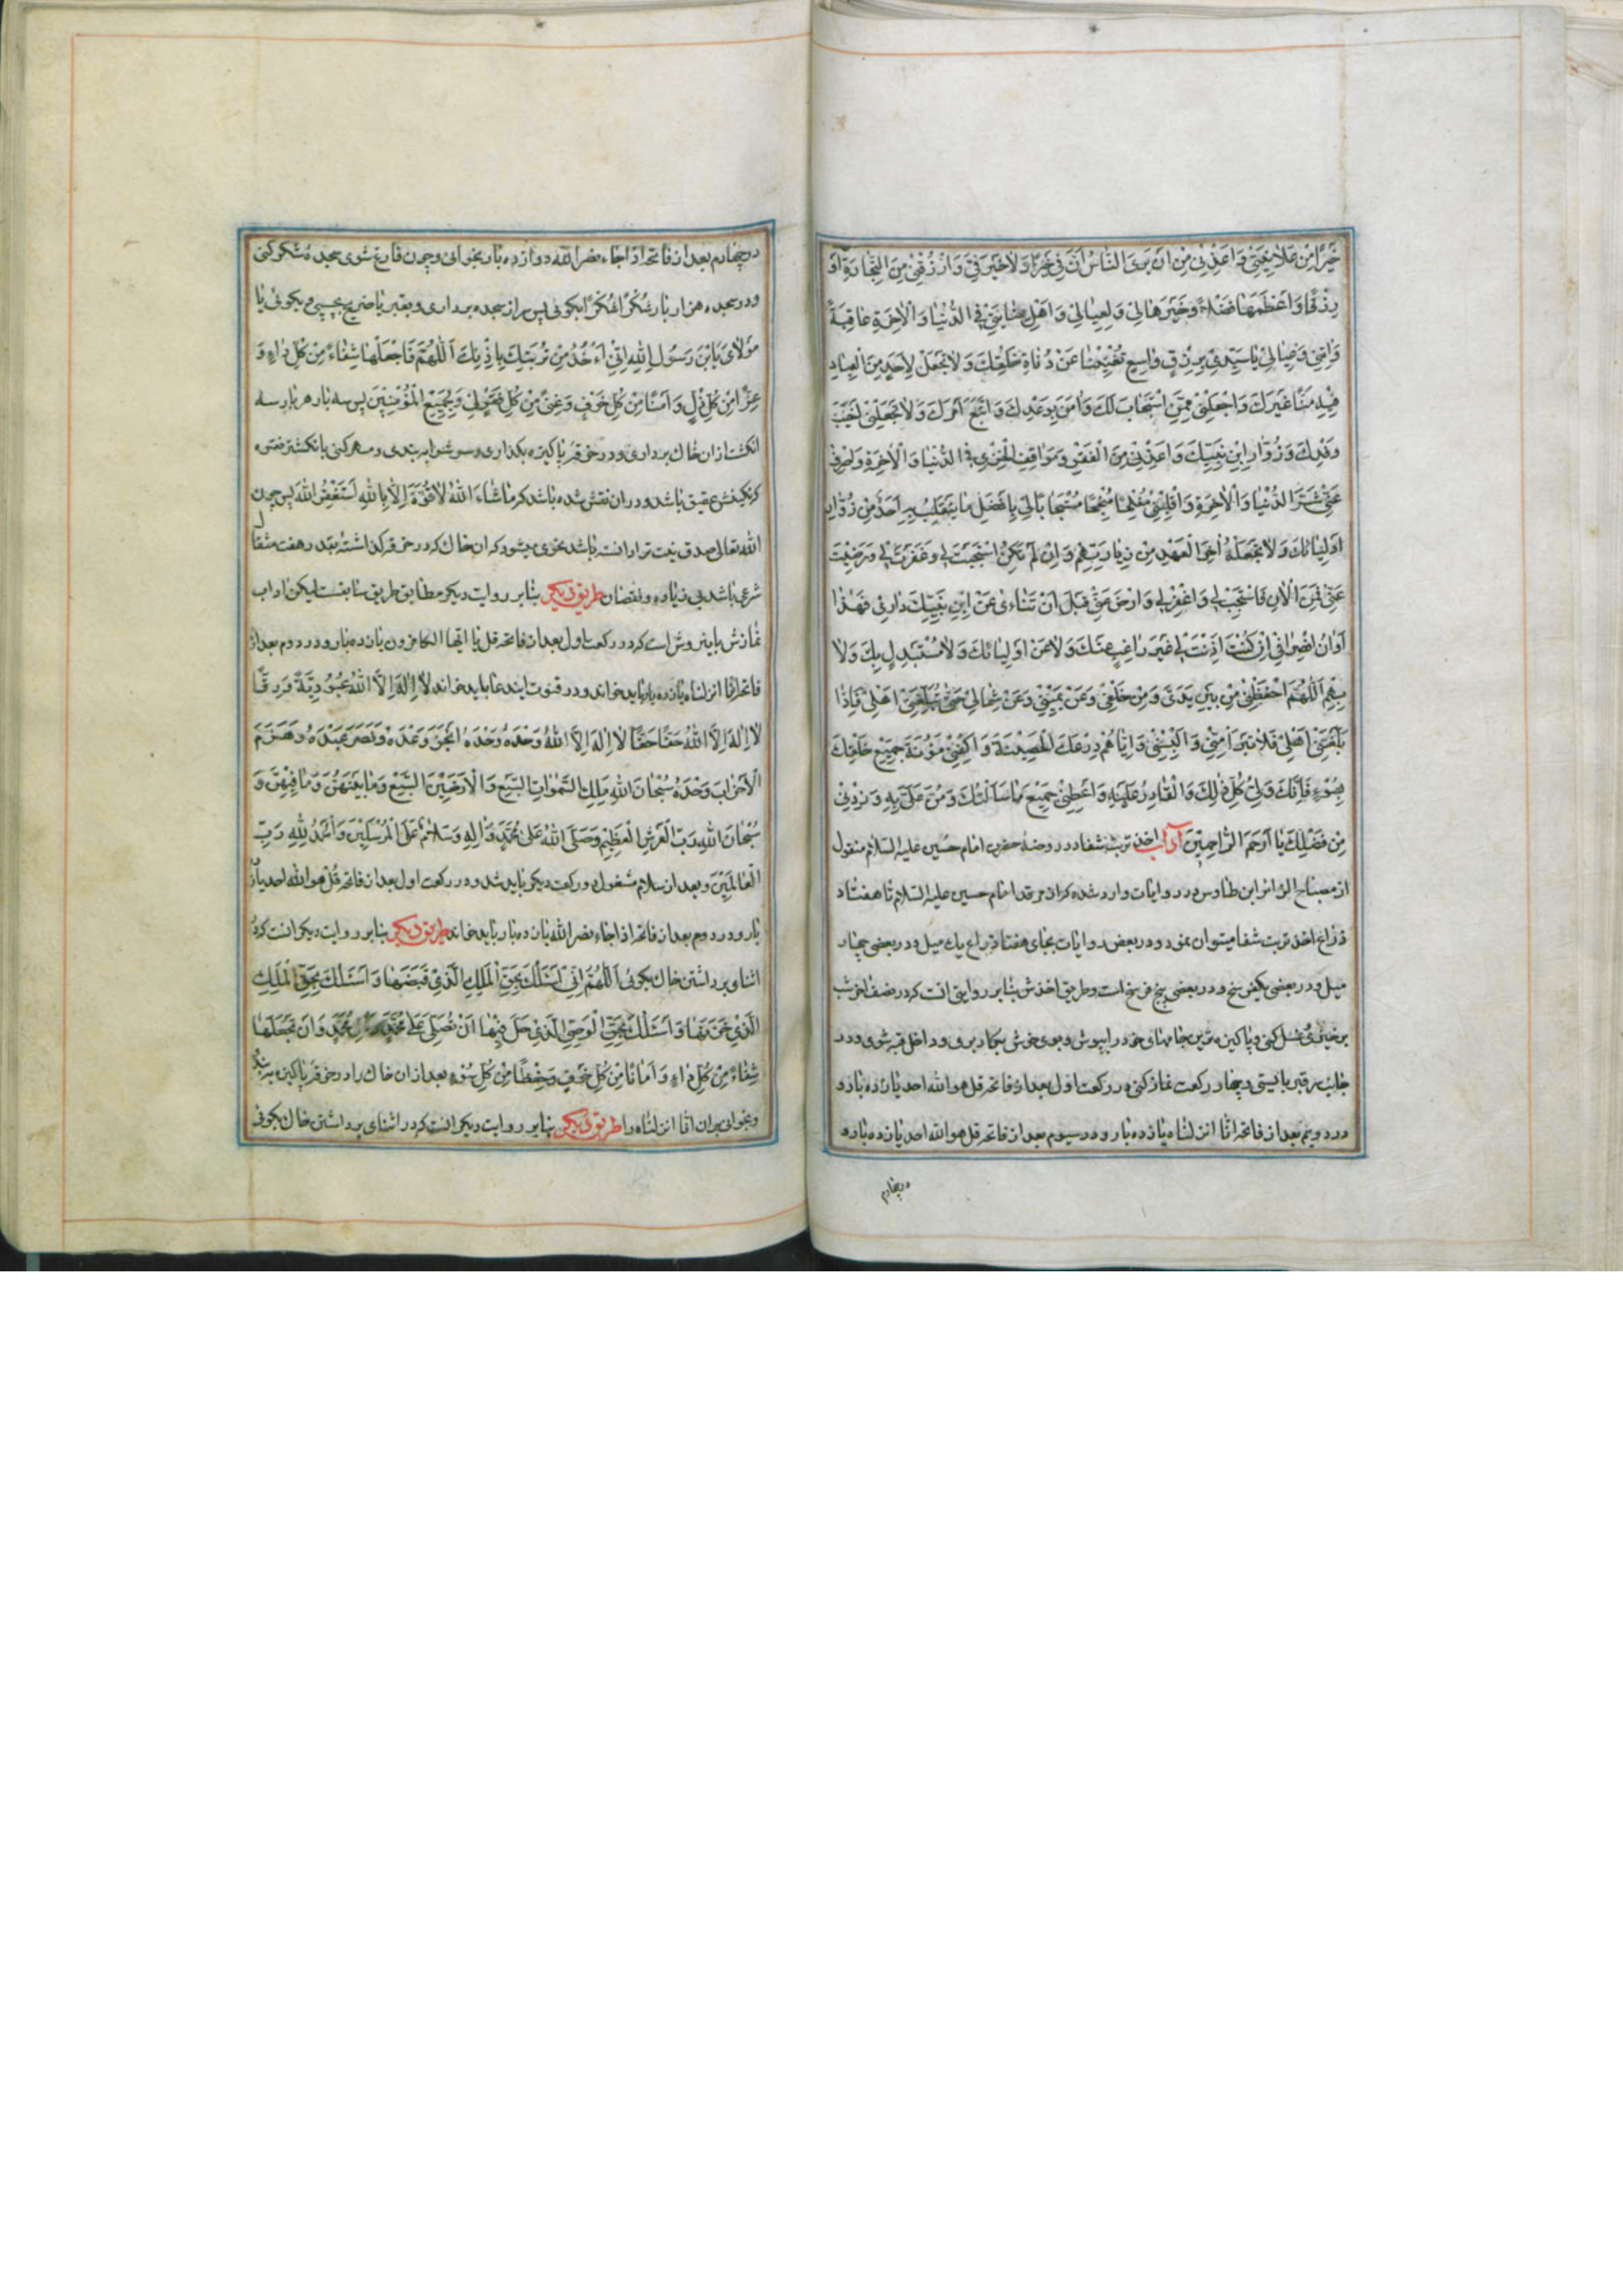 خَيْرًا مِنْ عَلَانِيَتِي وَاَعِذْنِي مِنْ اَنْ يَرَى النَّاسُ اَنَّ فِيَّ خَيْرًا وَلَا خَيْرَ فِيَّ وَارْزُقْنِي مِنَ التِّجَارَةِ اَوْسَعَهَا
رِزْقًا وَاَعْظَمَهَا فَضْلًا وَخَيْرَهَا لِي وَلِعِيَالِي وَاَهْلِ عِنَايَتِي فِي الدُّنْيَا وَالْاٰخِرَةِ عَاقِبَةً
وَاٰتِنِي وَعِيَالِي يَا سَيِّدِي بِرِزْقٍ وَاسِعٍ تُغْنِينَا عَنْ دُنَاةِ خَلْقِكَ وَلَا تَجْعَلْ لِاَحَدٍ مِنَ الْعِبَادِ
فِيهِ مَنًّا غَيْرَكَ وَاجْعَلْنِي مِمَّنِ اسْتَجَابَ لَكَ وَاٰمَنَ بِوَعْدِكَ وَاتَّبَعَ اَمْرَكَ وَلَا تَجْعَلْنِي اَخْيَبَ
وَفْدِكَ وَزُوَّارِ ابْنِ نَبِيِّكَ وَاَعِذْنِي مِنَ الْفَقْرِ وَمَوَاقِفِ الْخِزْيِ فِي الدُّنْيَا وَالْاٰخِرَةِ وَاصْرِفْ
عَنِّي شَرَّ الدُّنْيَا وَالْاٰخِرَةِ وَاقْلِبْنِي مُفْلِحًا مُنْجِحًا مُسْتَجَابًا لِي بِاَفْضَلِ مَا يَنْقَلِبُ بِهِ اَحَدٌ مِنْ زُوَّارِ
اَوْلِيَائِكَ وَلَا تَجْعَلْهُ اٰخِرَ الْعَهْدِ مِنْ زِيَارَتِهِمْ وَاِنْ لَمْ تَكُنْ اسْتَجَبْتَ لِي وَغَفَرْتَ لِي وَرَضِيتَ
عَنِّي فَمِنَ الْاٰنِ فَاسْتَجِبْ لِي وَاغْفِرْ لِي وَارْضَ عَنِّي قَبْلَ اَنْ تَنْاٰءى عَنِ ابْنِ نَبِيِّكَ دَارِي فَهٰذَا
اَوَانُ انْصِرَافِي اِنْ كُنْتَ اَذِنْتَ لِي غَيْرَ رَاغِبٍ عَنْكَ وَلَا عَنْ اَوْلِيَائِكَ وَلَا مُسْتَبْدِلٍ بِكَ وَلَا
بِهِمْ اَللّٰهُمَّ احْفَظْنِي مِنْ بَيْنِ يَدَيَّ وَمِنْ خَلْفِي وَعَنْ يَمِينِي وَعَنْ شِمَالِي حَتّٰى تُبَلِّغَنِي اَهْلِي فَاِذَا
بَلَّغْتَنِي اَهْلِي فَلَا تَبَرَّأْ مِنِّي وَاَلْبِسْنِي وَاِيَّاهُمْ دِرْعَكَ الْحَصِينَةَ وَاكْفِنِي مَؤُنَةَ جَمِيعِ خَلْقِكَ
بِسُوْءٍ فَاِنَّكَ وَلِيُّ كُلِّ ذٰلِكَ وَالْقَادِرُ عَلَيْهِ وَاَعْطِنِي جَمِيعَ مَا سَاَلْتُكَ وَمُنَّ عَلَيَّ بِهِ وَزِدْنِي
مِنْ فَضْلِكَ يَا اَرْحَمَ الرَّاحِمِيْنَ آداب اخذ تربت شفا در روضهٔ حضرت امام حسین علیه السّلام منقول
از مصباح الزائر ابن طاوس در روایات وارد شده که از مرقد امام حسین علیه السّلام تا هفتاد
ذراع اخذ تربت شفا میتوان نمود و در بعض روایات بجای هفتاد ذراع یک میل و در بعضی چهار
میل و در بعضی یکفرسخ و در بعضی پنج فرسخ است و طریق اخذش بنابر روایتی انست که در نصف اخر شب
برخیزی و غسل کنی و پاکیزه ترین جامهای خود را بپوشی و بوی خوش بکار بری و داخل قبه شوی و در
جانب سر قبر بایستی و چهار رکعت نماز کنی در رکعت اول بعد از فاتحه قل هو الله احد یازده بار و
در دویم بعد از فاتحه انّا انزلناه یازده بار و در سیوم بعد از فاتحه قل هو الله احد یازده بار و
درچهارم
درچهارم بعد از فاتحه اذا جاء نصر الله دوازده بار بخوانی و چون فارغ شوی سجدهٔ شکر کنی
و در سجده هزار بار شُکْرًا شُکْرًا بکوئی پس سر از سجده برداری و بقبر یا ضریح بچسپی و بکوئی یا
مَوْلَايَ يَابْنَ رَسُولِ اللّٰهِ اِنِّي اٰخُذُ مِنْ تُرْبَتِكَ بِاِذْنِكَ اَللّٰهُمَّ فَاجْعَلْهَا شِفَاءً مِنْ كُلِّ دَاءٍ وَ
عِزًّا مِنْ كُلِّ ذُلٍّ وَاَمْنًا مِنْ كُلِّ خَوْفٍ وَغِنًى مِنْ كُلِّ فَقْرٍ لِي وَلِجَمِيعِ الْمُؤْمِنِينَ پس سه بار هر بار سه
انکشت از ان خاک برداری و در خرقهٔ پاکیزه بکذاری و سرش را ببندی و مهر کنی بانکشتر نقره
که نکینش عقیق باشد و در ان نقش شده باشد که مَا شَاءَ اللّٰهُ لَا قُوَّةَ اِلَّا بِاللّٰهِ اَسْتَغْفِرُ اللّٰهَ پس چون
الله تعالی صدق نیت ترا دانسته باشد نحوی میشود که ان خاک که در خرقه کذاشته بقدر هفت مثقال
شرعی باشد بی زیاده و نقصان طریق دیکر بنابر روایت دیکر مطابق طریق سابقست لیکن اداب
نمازش باینروش است که در رکعت اول بعد از فاتحه قل یا ایّها الکافرون یازده بار و در دوم بعد از
فاتحه انّا انزلناه یازده بار باید خواند و در قنوت ایندعا باید خواند لَا اِلٰهَ اِلَّا اللّٰهُ عُبُوْدِيَّةً وَرِقًّا
لَا اِلٰهَ اِلَّا اللّٰهُ حَقًّا حَقًّا لَا اِلٰهَ اِلَّا اللّٰهُ وَحْدَهُ وَحْدَهُ اَنْجَزَ وَعْدَهُ وَنَصَرَ عَبْدَهُ وَهَزَمَ
الْاَحْزَابَ وَحْدَهُ سُبْحَانَ اللّٰهِ مَلِكِ السَّمٰوَاتِ السَّبْعِ وَالْاَرَضِيْنَ السَّبْعِ وَمَا بَيْنَهُنَّ وَمَا فِيْهِنَّ وَ
سُبْحَانَ اللّٰهِ رَبِّ الْعَرْشِ الْعَظِيْمِ وَصَلَّى اللّٰهُ عَلٰى مُحَمَّدٍ وَاٰلِهِ وَسَلَامٌ عَلَى الْمُرْسَلِيْنَ وَالْحَمْدُ لِلّٰهِ رَبِّ
الْعَالَمِيْنَ و بعد از سلام مشغول دو رکعت دیکر باید شد و در رکعت اول بعد از فاتحه قُل هو الله احد یازده
بار و در دوم بعد از فاتحه اذا جاء نصر الله یازده بار باید خواند طریق دیکر بنابر روایت دیکر انست که در
اثنای برداشتن خاک بکوئی اَللّٰهُمَّ اِنِّي اَسْئَلُكَ بِحَقِّ الْمَلَكِ الَّذِيْ قَبَضَهَا وَاَسْئَلُكَ بِحَقِّ الْمَلَكِ
الَّذِيْ خَزَنَهَا وَاَسْئَلُكَ بِحَقِّ الْوَصِيِّ الَّذِيْ حَلَّ فِيْهَا اَنْ تُصَلِّيَ عَلٰى مُحَمَّدٍ مُحَمَّدٍ وَاَنْ تَجْعَلَهَا
شِفَاءً مِنْ كُلِّ دَاءٍ وَاَمَانًا مِنْ كُلِّ خَوْفٍ وَحِفْظًا مِنْ كُلِّ سُوْءٍ بعد از ان خاک را در خرقهٔ پاکیزه ببندی
و بخوانی بران انّا انزلناه را طریق دیکر بنابر روایت دیکر انست که در اثنای برداشتن خاک بکوئی